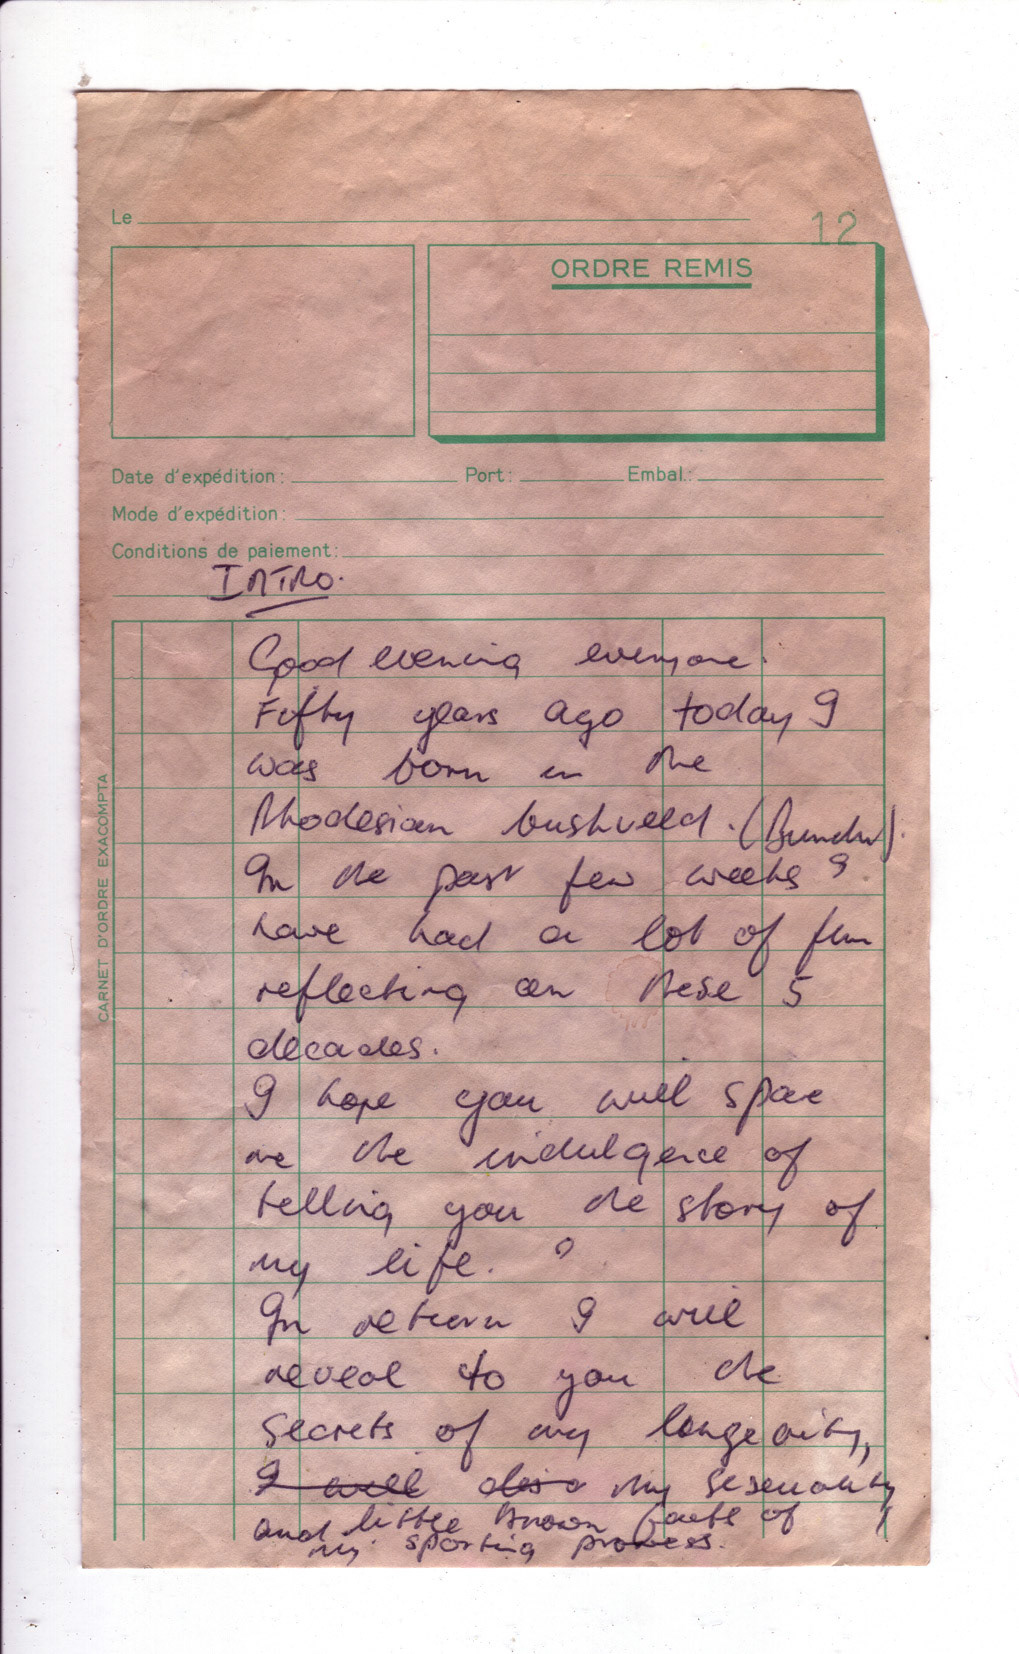 Le
12
ORDRE REMIS
Date d'expédition :
Port :
Embal. :
Mode d'expédition :
Conditions de paiement :
INTRO.
CARNET D'ORDRE EXACOMPTA
Good evening everyone.
Fifty years ago today I
was born in the
Rhodesian bushveld. (Bundu).
In the past few weeks I
have had a lot of fun
reflecting on these 5
decades.
I hope you will spare
me the indulgence of
telling you the story of
my life.
In return I will
reveal to you the
secrets of my longevity,
I will my sexuality,
and little known facts of
my sporting prowess.